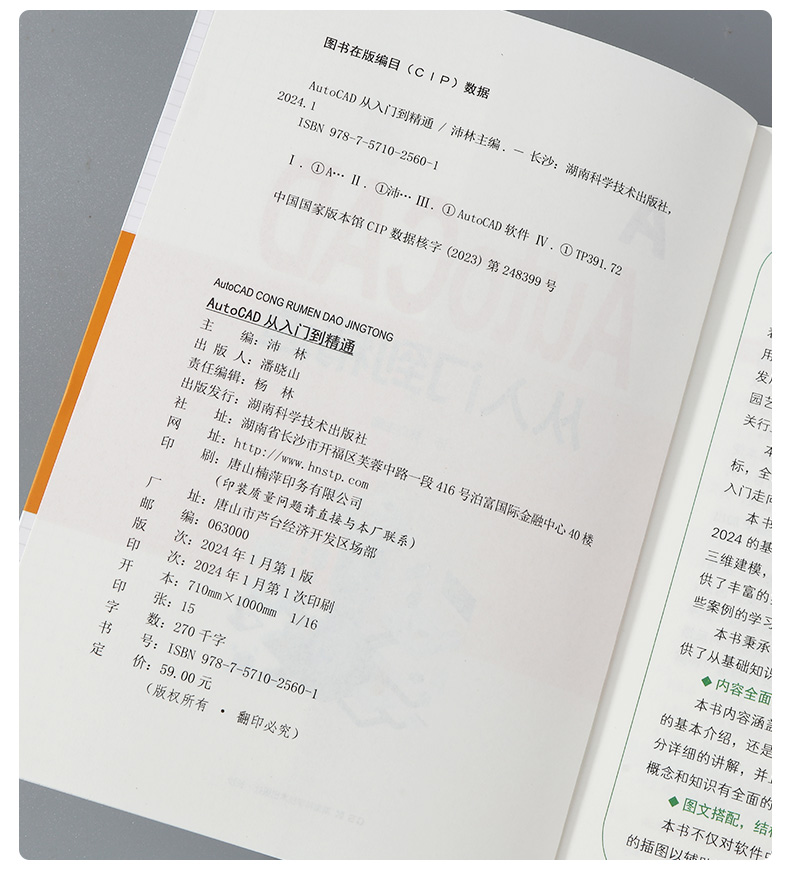 图书在版编目（CIP）数据
AutoCAD 从入门到精通 / 沛林主编. — 长沙：湖南科学技术出版社，
2024.1
ISBN 978-7-5710-2560-1
Ⅰ. ①A… Ⅱ. ①沛… Ⅲ. ①AutoCAD 软件 Ⅳ. ①TP391.72
中国国家版本馆 CIP 数据核字 (2023) 第 248399 号
AutoCAD CONG RUMEN DAO JINGTONG
AutoCAD 从入门到精通
主 编：沛 林
出 版 人：潘晓山
责任编辑：杨 林
出版发行：湖南科学技术出版社
社 址：湖南省长沙市开福区芙蓉中路一段 416 号泊富国际金融中心 40 楼
网 址：http://www.hnstp.com
印 刷：唐山楠萍印务有限公司
（印装质量问题请直接与本厂联系）
厂 址：唐山市芦台经济开发区场部
邮 编：063000
版 次：2024 年 1 月第 1 版
印 次：2024 年 1 月第 1 次印刷
开 本：710mm×1000mm 1/16
印 张：15
字 数：270 千字
书 号：ISBN 978-7-5710-2560-1
定 价：59.00 元
（版权所有 · 翻印必究）
用
发
园艺
关行
本
标，全
入门走向
本书
2024 的基
三维建模，
供了丰富的
些案例的学习
本书秉承
供了从基础知识
◆内容全面
本书内容涵盖
的基本介绍，还是
分详细的讲解，并
概念和知识有全面的
◆图文搭配，结
本书不仅对软件
的插图以辅